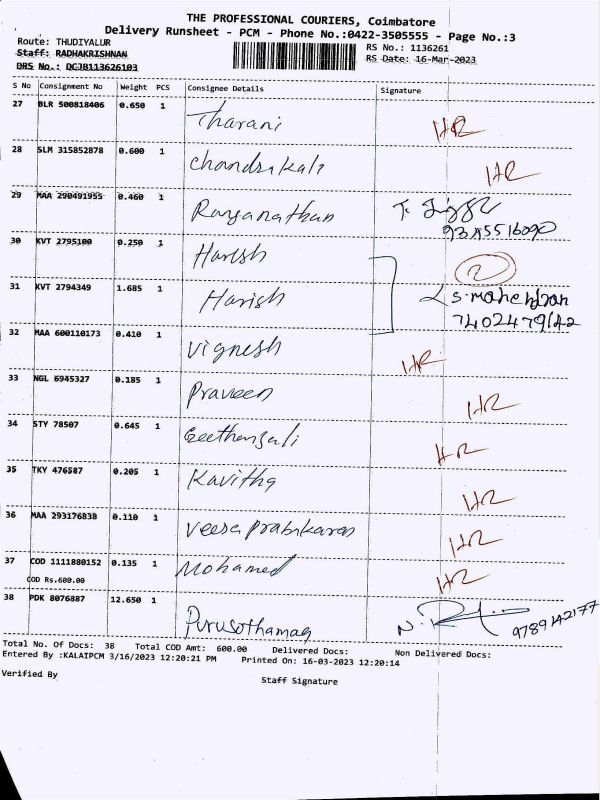 THE PROFESSIONAL COURIERS, Coimbatore
Delivery Runsheet - PCM - Phone No.:0422-3505555 - Page No.:3
Route: THUDIYALUR
RS No.: 1136261
Staff: RADHAKRISHNAN
RS Date: 16-Mar-2023
DRS No.: DCJB113626103
S No Consignment No Weight PCS Consignee Details Signature
27 BLR 500818406 0.650 1 Tharani HR
28 SLM 315852878 0.600 1 chandrikala HR
29 MAA 290491955 0.460 1 Ranganathan T.
30 KVT 2795100 0.250 1 Harish 2
31 KVT 2794349 1.685 1 Harish S. mahendran
7402479142
32 MAA 600110173 0.410 1 vignesh HR
33 NGL 6945327 0.185 1 Praveen HR
34 STY 78507 0.645 1 Geethanjali HR
35 TKY 476587 0.205 1 Kavitha HR
36 MAA 293176838 0.110 1 Veera Prabakaran HR
37 COD 1111880152 0.135 1 Mohamed HR
COD Rs.600.00
38 PDK 8076887 12.650 1 Purusothaman N. 9789142177
Total No. Of Docs: 38 Total COD Amt: 600.00 Delivered Docs: Non Delivered Docs:
Entered By :KALAIPCM 3/16/2023 12:20:21 PM Printed On: 16-03-2023 12:20:14
Verified By
Staff Signature